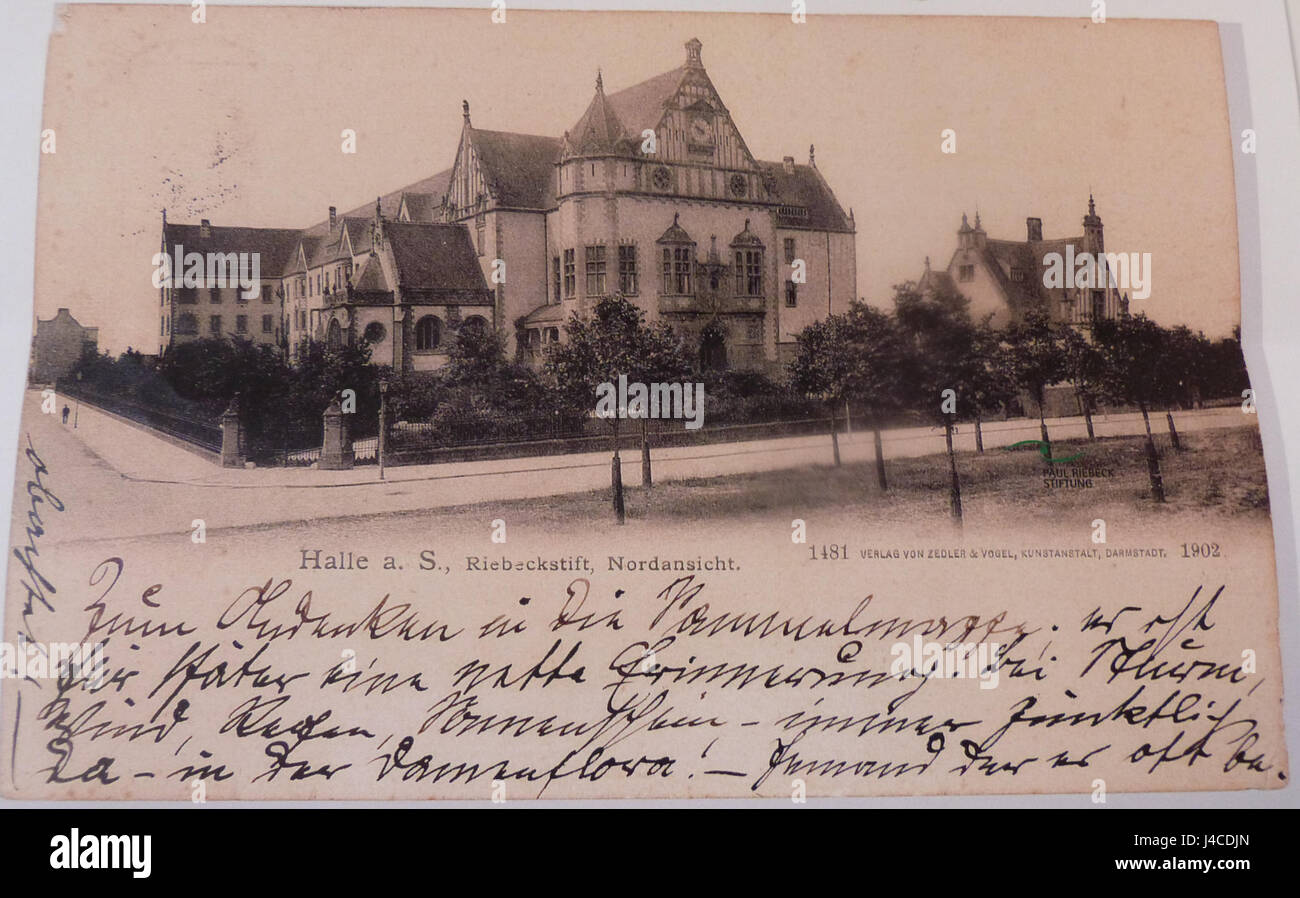 PAUL RIEBECK
STIFTUNG
Halle a. S., Riebeckstift, Nordansicht.
1481 VERLAG VON ZEDLER & VOGEL, KUNSTANSTALT, DARMSTADT. 1902
Zum Andenken in die Sammelmappe, er ist
für später eine nette Erinnerung! bei Sturm,
Wind, Regen, Sonnenschein – immer pünktlich
da – in der Damenflora! – Jemand der es oft be-
alamy
alamy stock photo
Image ID: J4CDJN
www.alamy.com